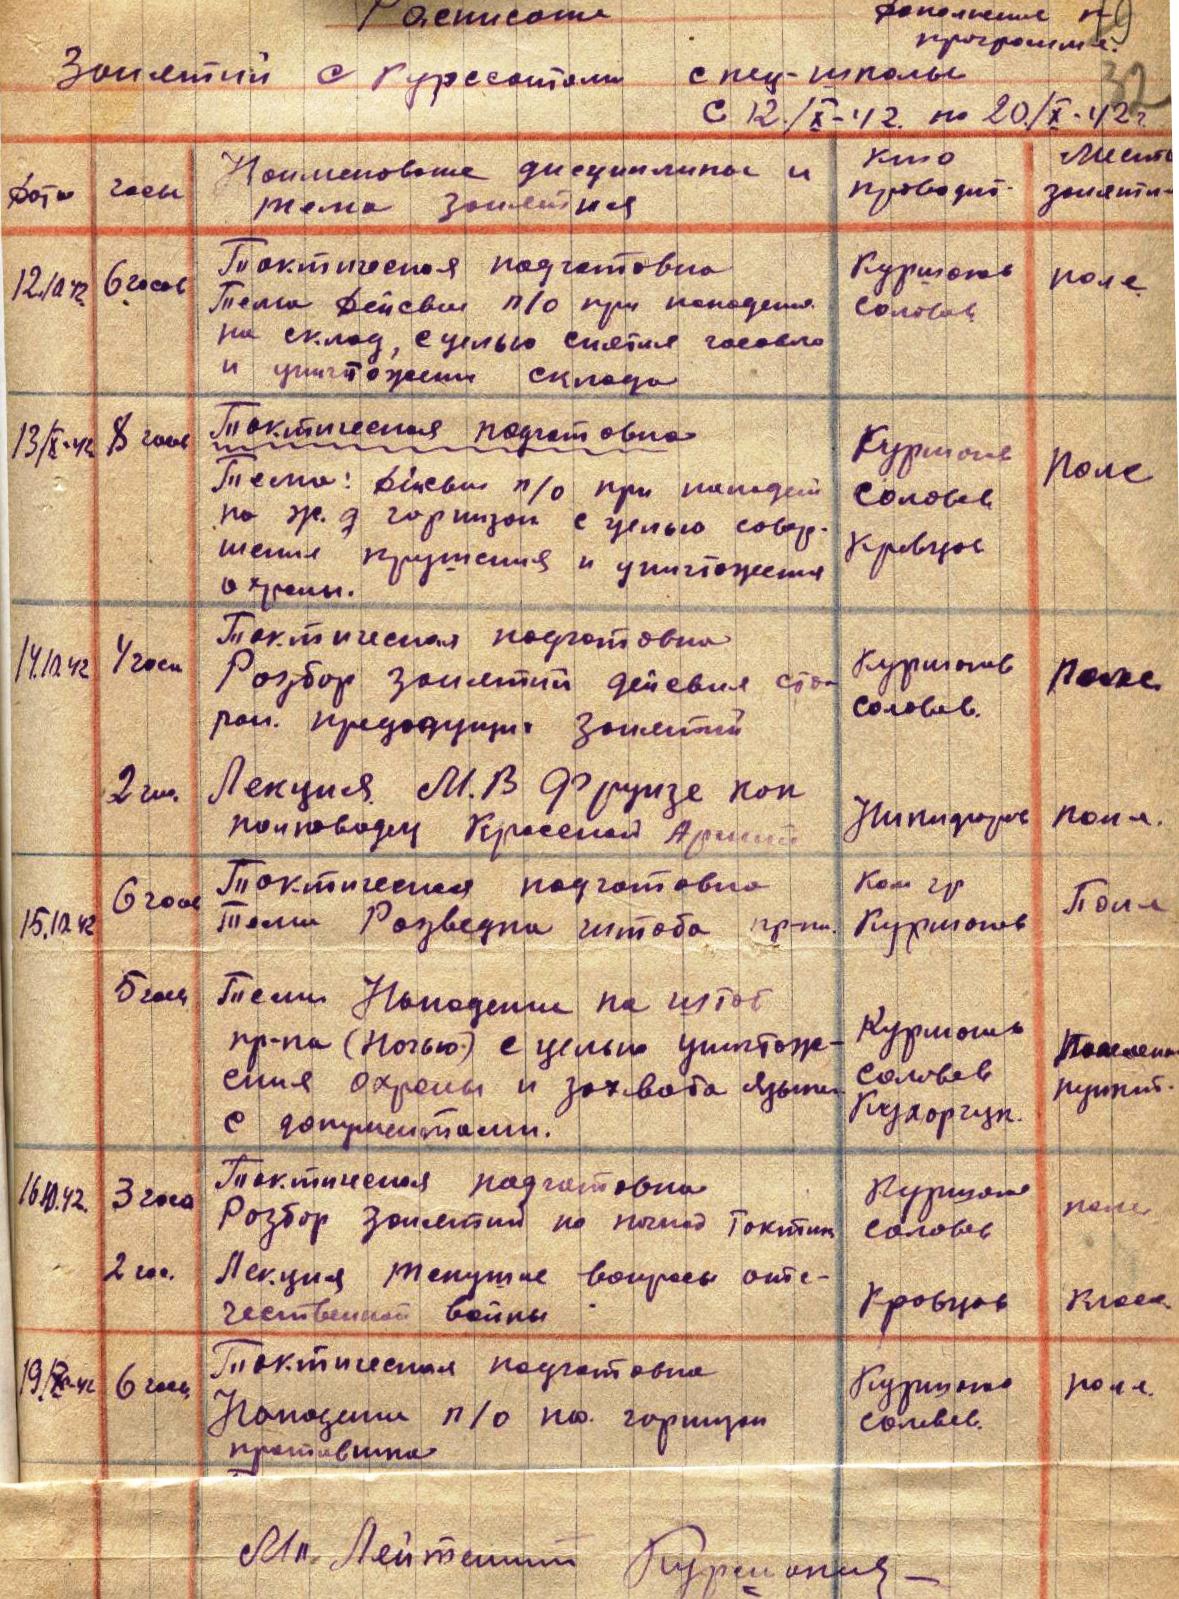 Расписание
Дополнение к
программе.
Занятий с курссантами спец-школы
с 12/X-42. по 20/X-42 г.
32
Дата часы Наименование дисциплины и тема занятия
кто проводит
Место занятия
12.10.42 6 часов Тактическая подготовка
Тема Дейсвие п/о при нападении
на склад, с целью снятия часового
и уничтожения склада
Куршаков
Соловов
поле
13/X-42 8 часов Тактическая подготовка
Тема: Дейсвие п/о при нападен
на ж.д гарнизон с целью совер-
шения крушения и уничтожения
охраны.
Куршаков
Соловов
Кравцов
Поле
14.10.42 4 часа Тактическая подготовка
Разбор занятий дейсвия сто-
рон. предыдущих занятий
Куршаков
Соловов.
Поле
2 час. Лекция М.В Фрунзе как
полководец Красной Армии
Никифоров
поле.
15.10.42 6 часов Тактическая подготовка
Тема Разведка штаба пр-ка.
Ком гр
Куршаков
Поле
5 часов Тема Нападение на штаб
пр-ка (Ночью.) с целью уничтоже-
ения охраны и захвата языка
с документами.
Куршаков
Соловов
пункт.
16.10.42. 3 часа Тактическая подготовка
Разбор занятий по ночной тактик
Куршаков
Соловов
поле
2 час. Лекция текущие вопросы оте-
чественной войны
Кравцов
Класс.
19/X-42 6 часов Тактическая подготовка
Нападение п/о на гарнизон
противника
Куршаков
Соловов.
поле.
Мл. Лейтенант Куршаков